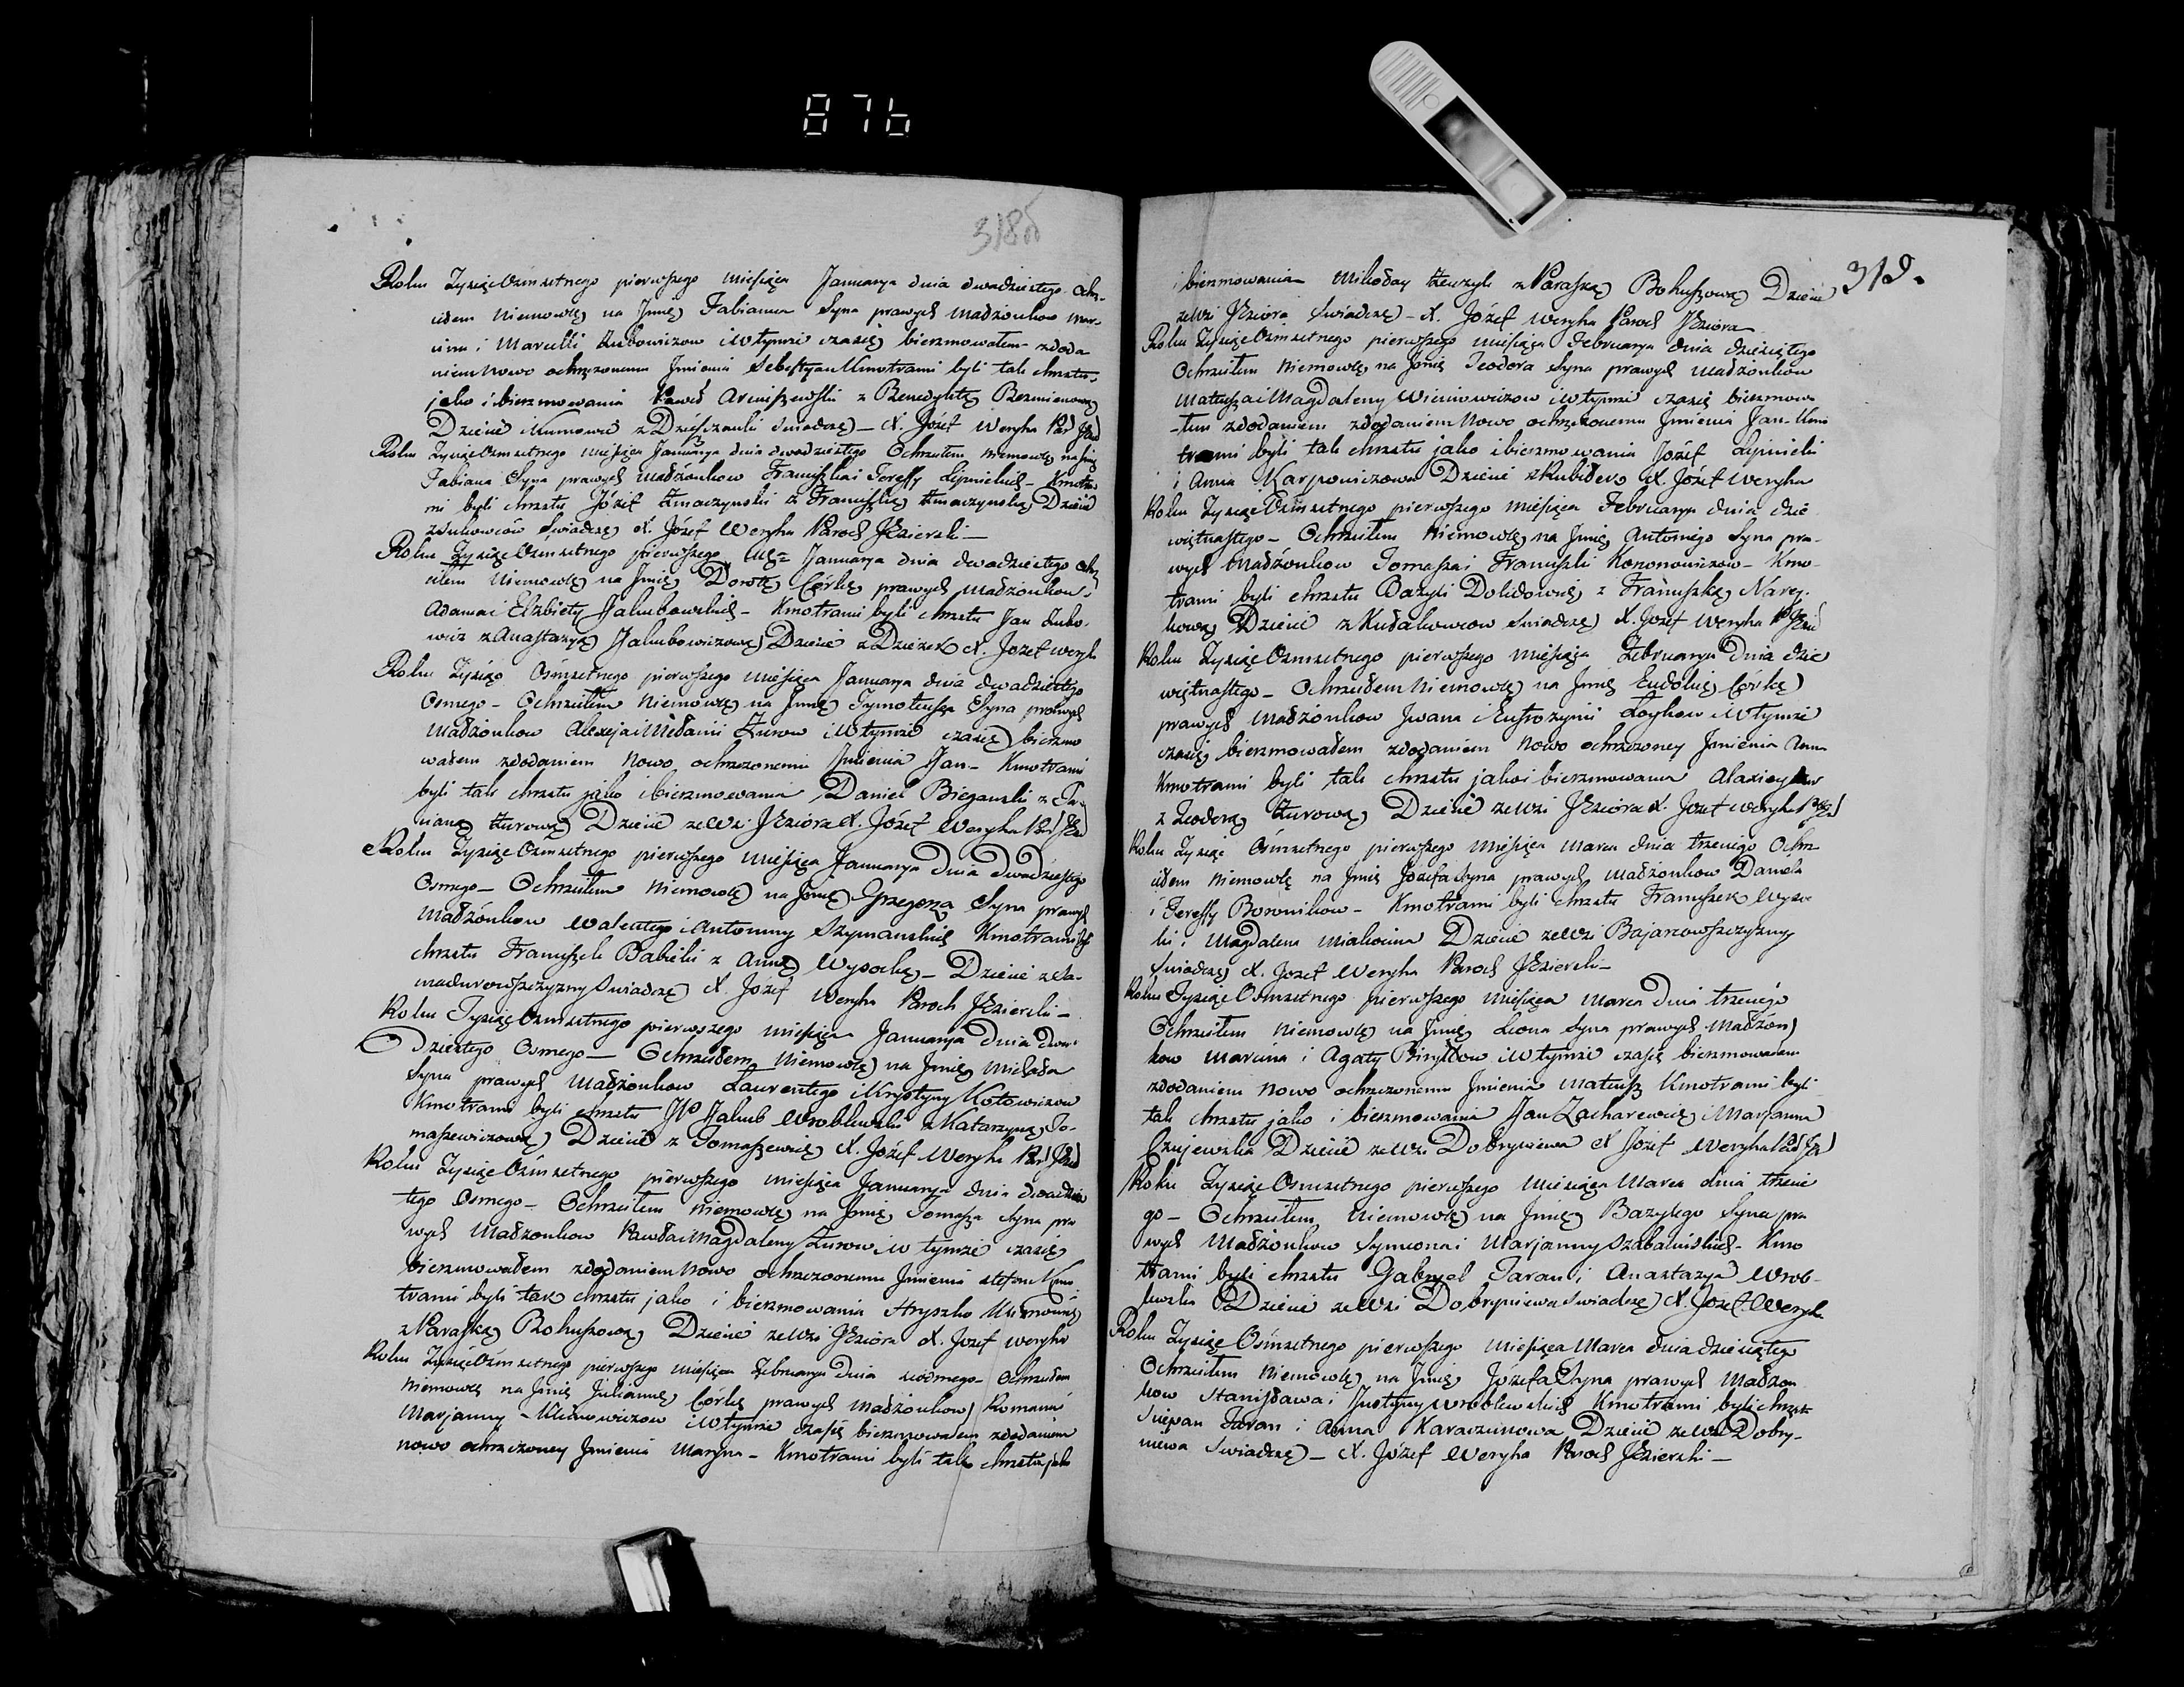 876
318об
Roku Tysiąc Osmsetnego pierwszego miesiąca Januarya dnia dwudziestego Ochrz-
ciłem Niemowlę na Jmię Fabiana Syna prawych Małżonkow Mar-
cina i Marcelli wtymże czasię bierzmowałem zdoda
niem Nowo ochrzczonemu Jmienia Sebestyan Kmotrami byli tak chrztu
jako i bierzmowania Paweł z Benedyktą
Dziecie z Swiadczę – X. Józef Weryha Par
Roku Tysiąc Osmsetnego miesiąca Januarya dnia dwudziestego Ochrzciłem Niemowlę na Jmię
Fabiana Syna prawych Małżonkow Franciszka i Teressy Lipnickich – Kmotra
mi byli chrztu Józef z Franciszką Dziecie
Swiadczę X. Józef Weryha Paroch Jezierski –
Roku Tysiąc Osmsetnego pierwszego Januarya dnia dwudziestego Ochrz
ciłem Niemowlę na Jmię Dorotę Córkę prawych Małżonkow
Adama i Elżbiety Jakubowskich – Kmotrami byli chrztu Jan Dubo-
wicz z Anastazyą Jakubowiczową Dziecie z X. Jozef Weryh
Roku Tysiąc Osmsetnego pierwszego miesiąca Januarya dnia dwudziestego
Osmego – Ochrzciłem Niemowlę na Jmię Tymoteusza Syna prawych
Małżonkow Alexeja i Mełanii Żurow i wtymże czasię bierzmo
wałem zdodaniem Nowo ochrzczonemu Jmienia Jan – Kmotrami
byli tak chrztu jako i bierzmowania Daniel Bieganski z
Żurową Dziecie zeWsi Jeziora X. Józef Weryha Par
Roku Tysiąc Osmsetnego pierwszego miesiąca Januarya Dnia Dwudziestego
Osmego – Ochrzciłem Niemowlę na Jmię Grzegorza Syna prawych
Małżonkow Walentego i Antoniny Szymanskich Kmotrami byli
chrztu Franciszek Babicki z Anną Wysocką – Dziecie
Swiadczę X. Józef Weryha Paroch Jezierski –
Roku Tysiąc Osmsetnego pierwszego miesiąca Januarya Dnia Dwu-
Dziestego Osmego – Ochrzciłem Niemowlę na Jmię Michała
Syna prawych Małżonkow Laurentego i Krystyny Kotowiczow
Kmotrami byli chrztu Jakub Wroblewski z Katarzyną To-
maszewiczową Dziecie z X. Józef Weryha Par
Roku Tysiąc Osmsetnego pierwszego miesiąca Januarya dnia dwudzies
tego Osmego – Ochrzciłem Niemowlę na Jmię Tomasza Syna pra
wych Małżonkow Pawła i Magdaleny Żurow i w tymże czasię
bierzmowałem zdodaniem Nowo ochrzczonemu Jmienia Stefan Kmo
trami byli tak chrztu jako i bierzmowania Hryszko
z Paraską Bohuszową Dziecie zeWsi Jeziora X. Jozef Weryha
Roku Tysiąc Osmsetnego pierwszego miesiąca Februarya Dnia siodmego – Ochrzciłem
Niemowlę na Jmię Juliannę Córkę prawych Małżonkow Romana i
Marjanny – Klimowiczow i wtymże czasię bierzmowałem zdodaniem
nowo ochrzczoney Jmienia Maryna – Kmotrami byli tak chrztu jako
319.
i bierzmowania Mikołay z Paraską Bohuszową Dziecie
zeWsi Jeziora Swiadczę – X. Józef Weryha Paroch Jeziora
Roku Tysiąc Osmsetnego pierwszego miesiąca Februarya dnia dziesiątego
Ochrzciłem Niemowlę na Jmię Teodora Syna prawych Małżonkow
Mateusza i Magdaleny i wtymże czasię bierzmowa
-łem zdodaniem zdodaniem Nowo ochrzczonemu Jmienia Jan – Kmo
trami byli tak chrztu jako i bierzmowania Józef Lipnicki
i Anna Karpowiczowa Dziecie X. Józef Weryha
Roku Tysiąc Osmsetnego pierwszego miesiąca Februarya dnia dzie
więtnastego – Ochrzciłem Niemowlę na Jmię Antoniego Syna pra-
wych Małżonkow Tomasza i Franciszki Kononowiczow – Kmo-
trami byli chrztu Bazyli z Franciszką
Dziecie z Swiadczę X. Jozef Weryha
Roku Tysiąc Osmsetnego pierwszego miesiąca Februarya Dnia dzie
więtnastego – Ochrzciłem Niemowlę na Jmię Eudokię Córkę
prawych Małżonkow Jwana i Eufrozynii i wtymże
czasię bierzmowałem zdodaniem Nowo ochrzczoney Jmienia Anna
Kmotrami byli tak chrztu jako i bierzmowania
z Teodorą Żurową Dziecie zeWsi Jeziora X. Jozef Weryha
Roku Tysiąc Osmsetnego pierwszego miesiąca Marca dnia trzeciego Ochrz
ciłem Niemowlę na Jmię Jozefa Syna prawych Małżonkow Daniela
i Teressy Borowikow – Kmotrami byli chrztu Franciszek Wyso
cki i Magdalena Dziecie zeWsi
Swiadczę X. Jozef Weryha Paroch Jezierski –
Roku Tysiąc Osmsetnego pierwszego miesiąca Marca Dnia trzeciego
Ochrzciłem Niemowlę na Jmię Leona Syna prawych Małżon
kow Marcina i Agaty i wtymże czasię bierzmowałem
zdodaniem nowo ochrzczonemu Jmienia Mateusz Kmotrami byli
tak chrztu jako i bierzmowania Jan Zacharewicz i Marjanna
Dziecie zeWsi Dobryniewa X Józef Weryha
Roku Tysiąc Osmsetnego pierwszego Miesiąca Marca dnia trzecie
go – Ochrzciłem Niemowlę na Jmię Bazylego Syna pra
wych Małżonkow Symeona i Marjanny – Kmo
trami byli chrztu Gabryel Taran i Anastazya Wrob-
lewska Dziecie zeWsi Dobryniewa Swiadczę X. Jozef Weryh
Roku Tysiąc Osmsetnego pierwszego miesiąca Marca dnia dziesiątego
Ochrzciłem Niemowlę na Jmię Józefa Syna prawych Małżon
kow Stanisława i Justyny Wroblewskich Kmotrami byli chrztu
Taran i Anna Karaczunowa Dziecie zeWsi Dobry-
niewa Swiadczę – X. Józef Weryha Paroch Jezierski –